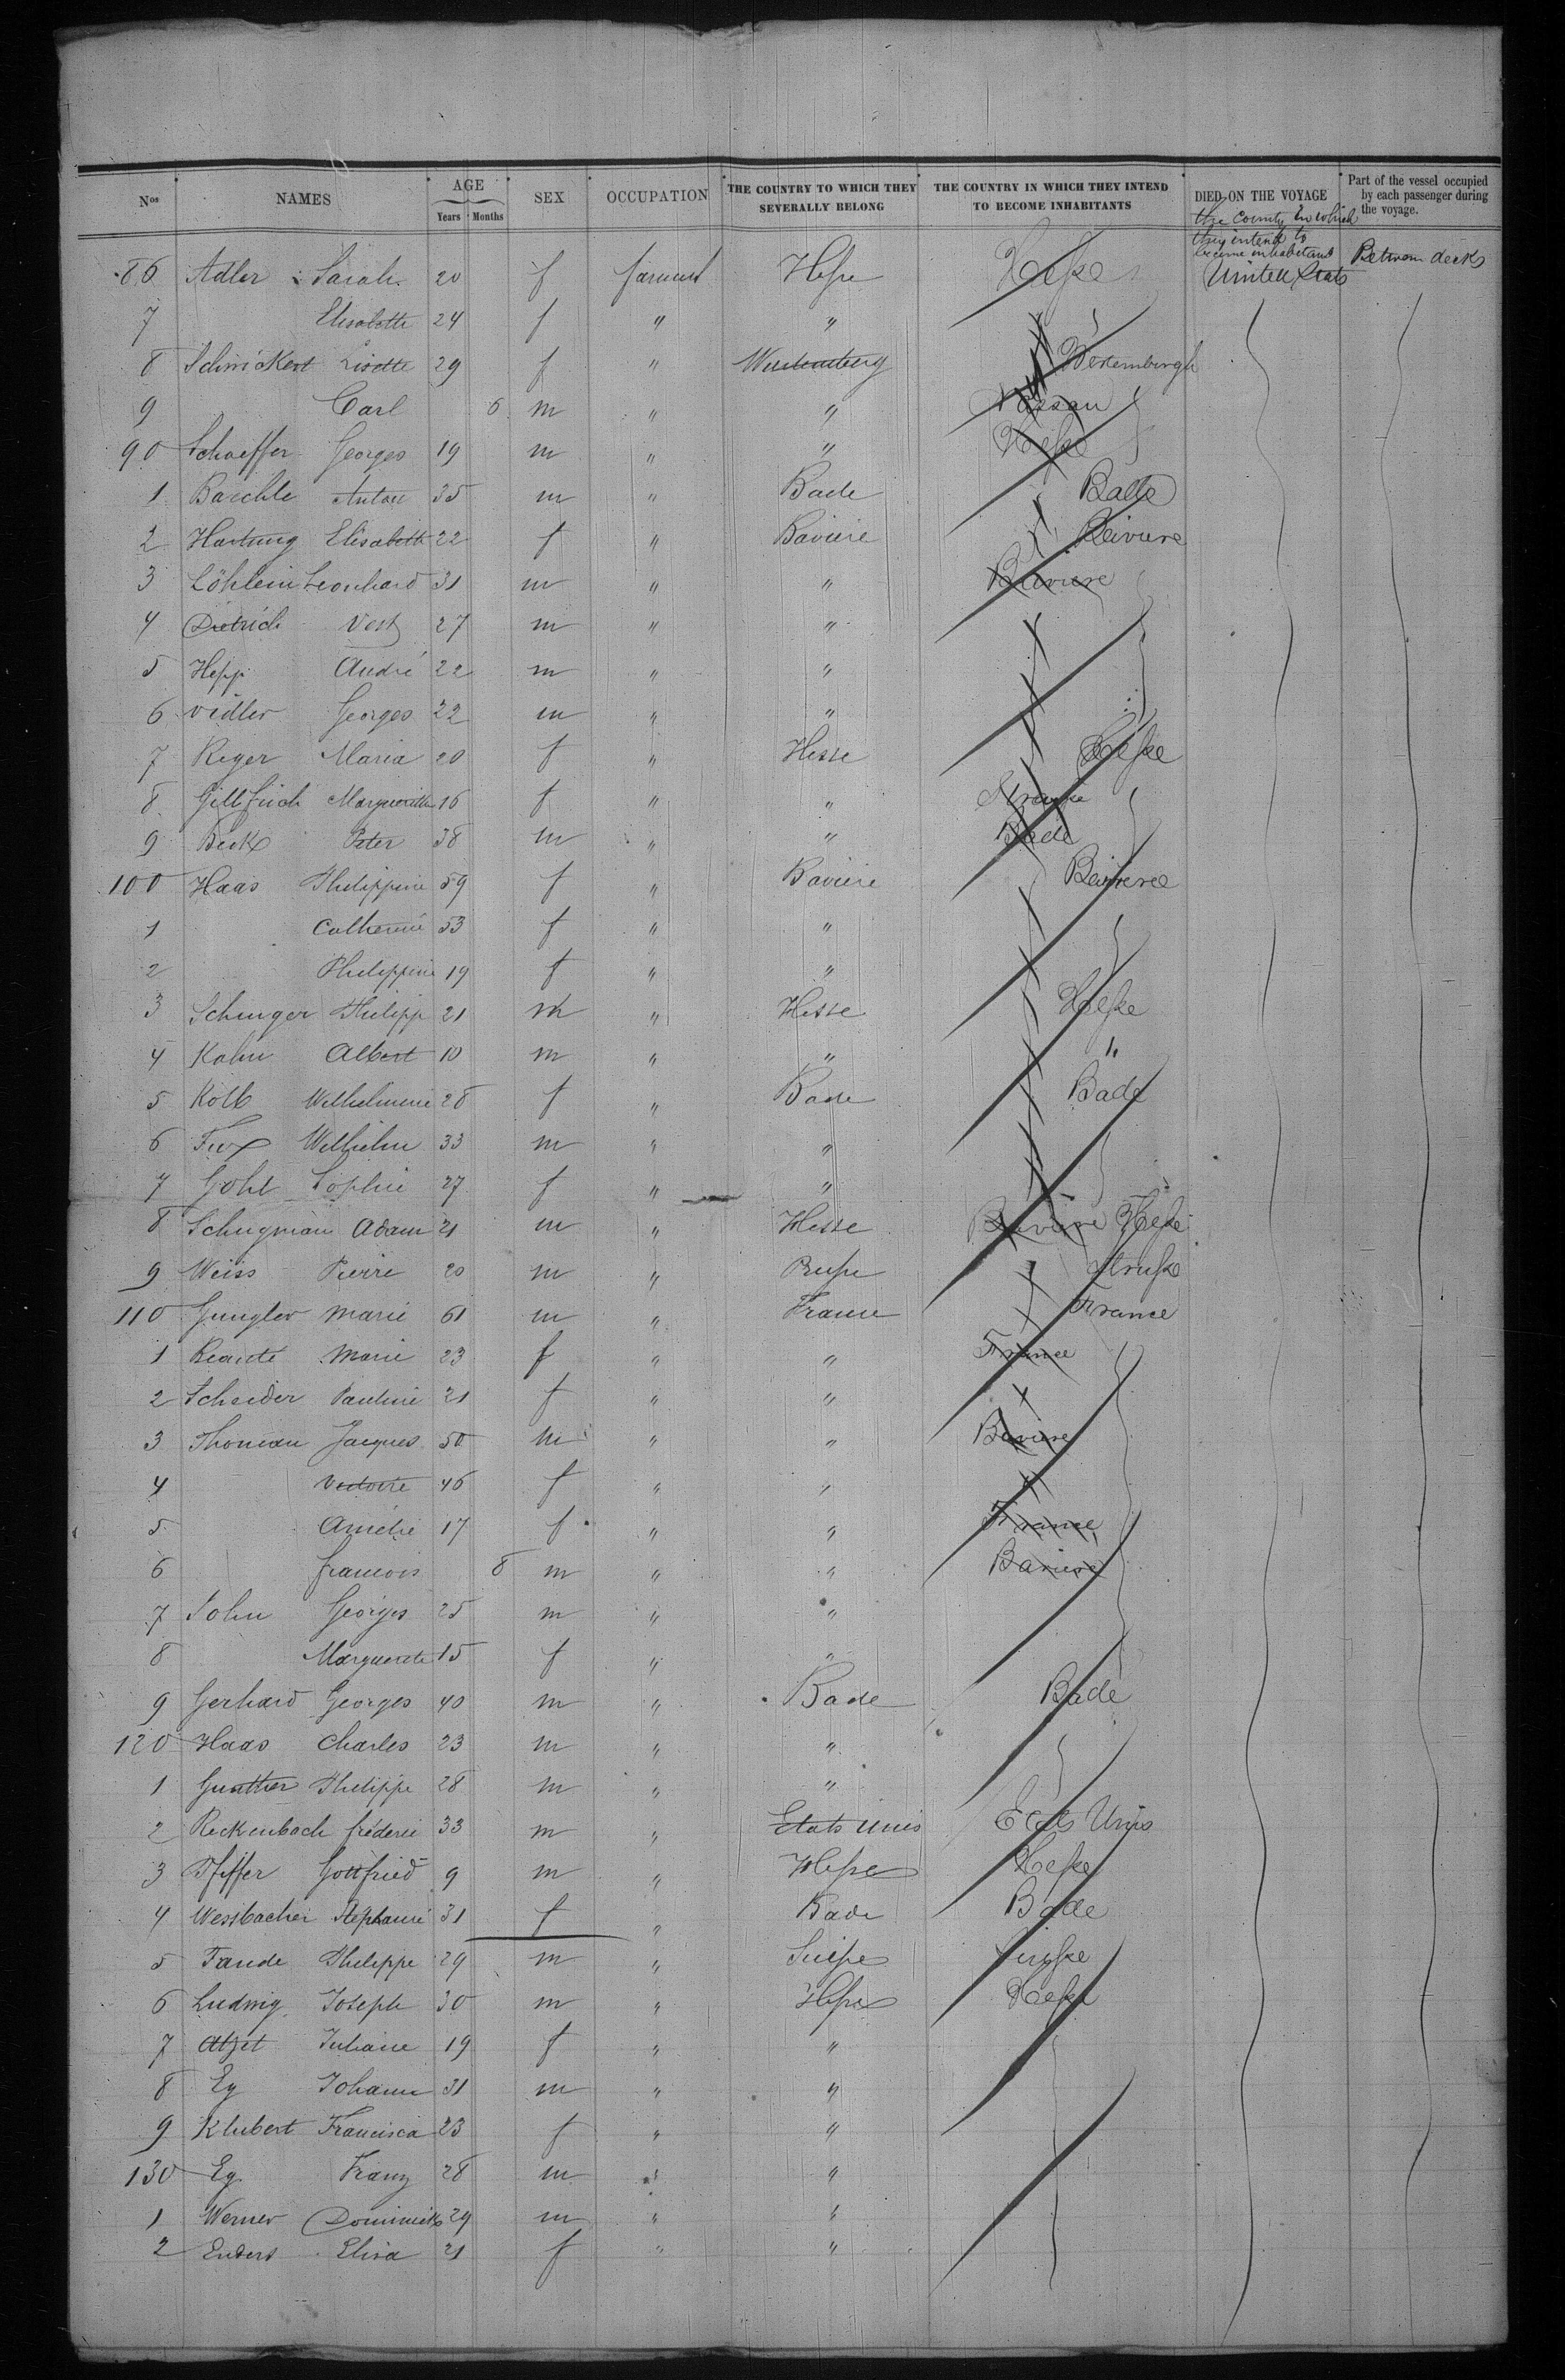 Nos NAMES AGE Years Months SEX OCCUPATION THE COUNTRY TO WHICH THEY SEVERALLY BELONG THE COUNTRY IN WHICH THEY INTEND TO BECOME INHABITANTS DIED ON THE VOYAGE Part of the vessel occupied by each passenger during the voyage.
the County in which they intend to become inhabitants
86 Adler Sarah 20 f Hesse Hesse United Stats Between decks
7 Elisabette 24 f " "
8 Schwickert Lisette 29 f " Wurtemberg
9 Carl 6 m " " Nassau
90 Schaeffer Georges 19 m " " Hesse
1 Baechle Anton 35 m " Bade Bade
2 Hartung Elisabette 22 f " Baviere
3 Löhlein Leonhard 31 m " " Baviere
4 Dietrich Vest 27 m " "
5 Hepp André 22 m " "
6 Vidler Georges 22 m " "
7 Reger Maria 20 f " Hesse Hesse
8 Marguerithe 16 f " "
9 Beck Peter 38 m " " Bade
100 Haas Philippine 59 f " Baviere Baviere
1 Catherine 53 f " "
2 Philippine 19 f " "
3 Schurger Philipp 21 m " Hesse Hesse
4 Kahn Albert 10 m " " "
5 Kolb Wilhelmine 28 f " Bade Bade
6 Fux Wilhelm 33 m " "
7 Gohl Sophie 27 f " "
8 Schugman Adam 21 m " Hesse Baviere Hesse
9 Weiss Pierre 20 m " Prusse Prusse
110 Gungler Marie 61 m " France France
1 Marie 23 f " " France
2 Scheider Pauline 21 f " "
3 Thomean Jacques 50 m " " Baviere
4 Victoire 46 f " "
5 Amélie 17 f " " France
6 francois 8 m " " Baviere
7 Sohn Georges 25 m " "
8 Marguerite 15 f " "
9 Gerhard Georges 40 m " Bade Bade
120 Haas Charles 23 m " "
1 Gunther Philippe 28 m " "
2 Reckenbach fréderic 33 m " Etats Unis Etats Unis
3 Pfiffer Gottfried 9 m " Hesse Hesse
4 Wessbacher Stephanie 31 f " Bade Bade
5 Fande Philippe 29 m " Suisse Suisse
6 Ludwig Joseph 30 m " Hesse Hesse
7 Atzet Juliane 19 f " "
8 Eg Johann 31 m " "
9 Klubert Francisca 23 f " "
130 Eg Franz 28 m " "
1 Werner Dominick 29 m " "
2 Enders Elisa 21 f " "